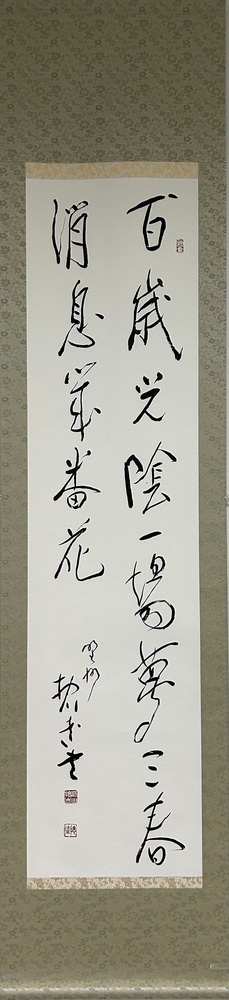 百歳光陰一場夢三春
消息幾番花